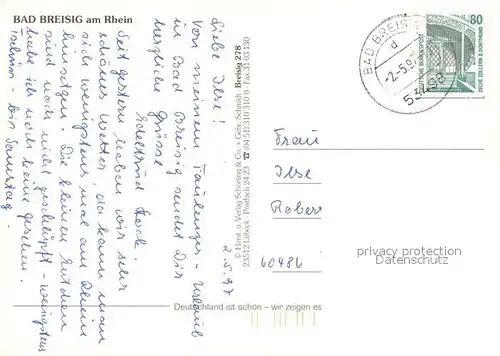 BAD BREISIG am Rhein
Liebe Ilse!
Von meinem Faulenzer-Urlaub
in Bad Breisig sendet Dir
herzliche Grüsse
Edeltrud Koch.
Seit gestern haben wir sehr
schönes Wetter, da kann man
sich wenigstens mal am Rhein
hinsetzen. Die kleinen Entchen
sind noch nicht geschlüpft - wenigstens
habe ich noch keine gesehen.
Tschüss - bis Samstag.
2.5.97
© Herst. u. Verlag Schöning & Co. + Gebr. Schmidt Breisig 278
23512 Lübeck · Postfach 24 23 ☎ (04 51) 3 10 31 0 · Fax 31 03 130
Deutschland ist schön – wir zeigen es
BAD BREISIG
d
-2.-5.97
53498
80
DEUTSCHE BUNDESPOST
ZECHE ZOLLERN 2 DORTMUND
Frau
Ilse
Rober
60486
privacy protection
Datenschutz